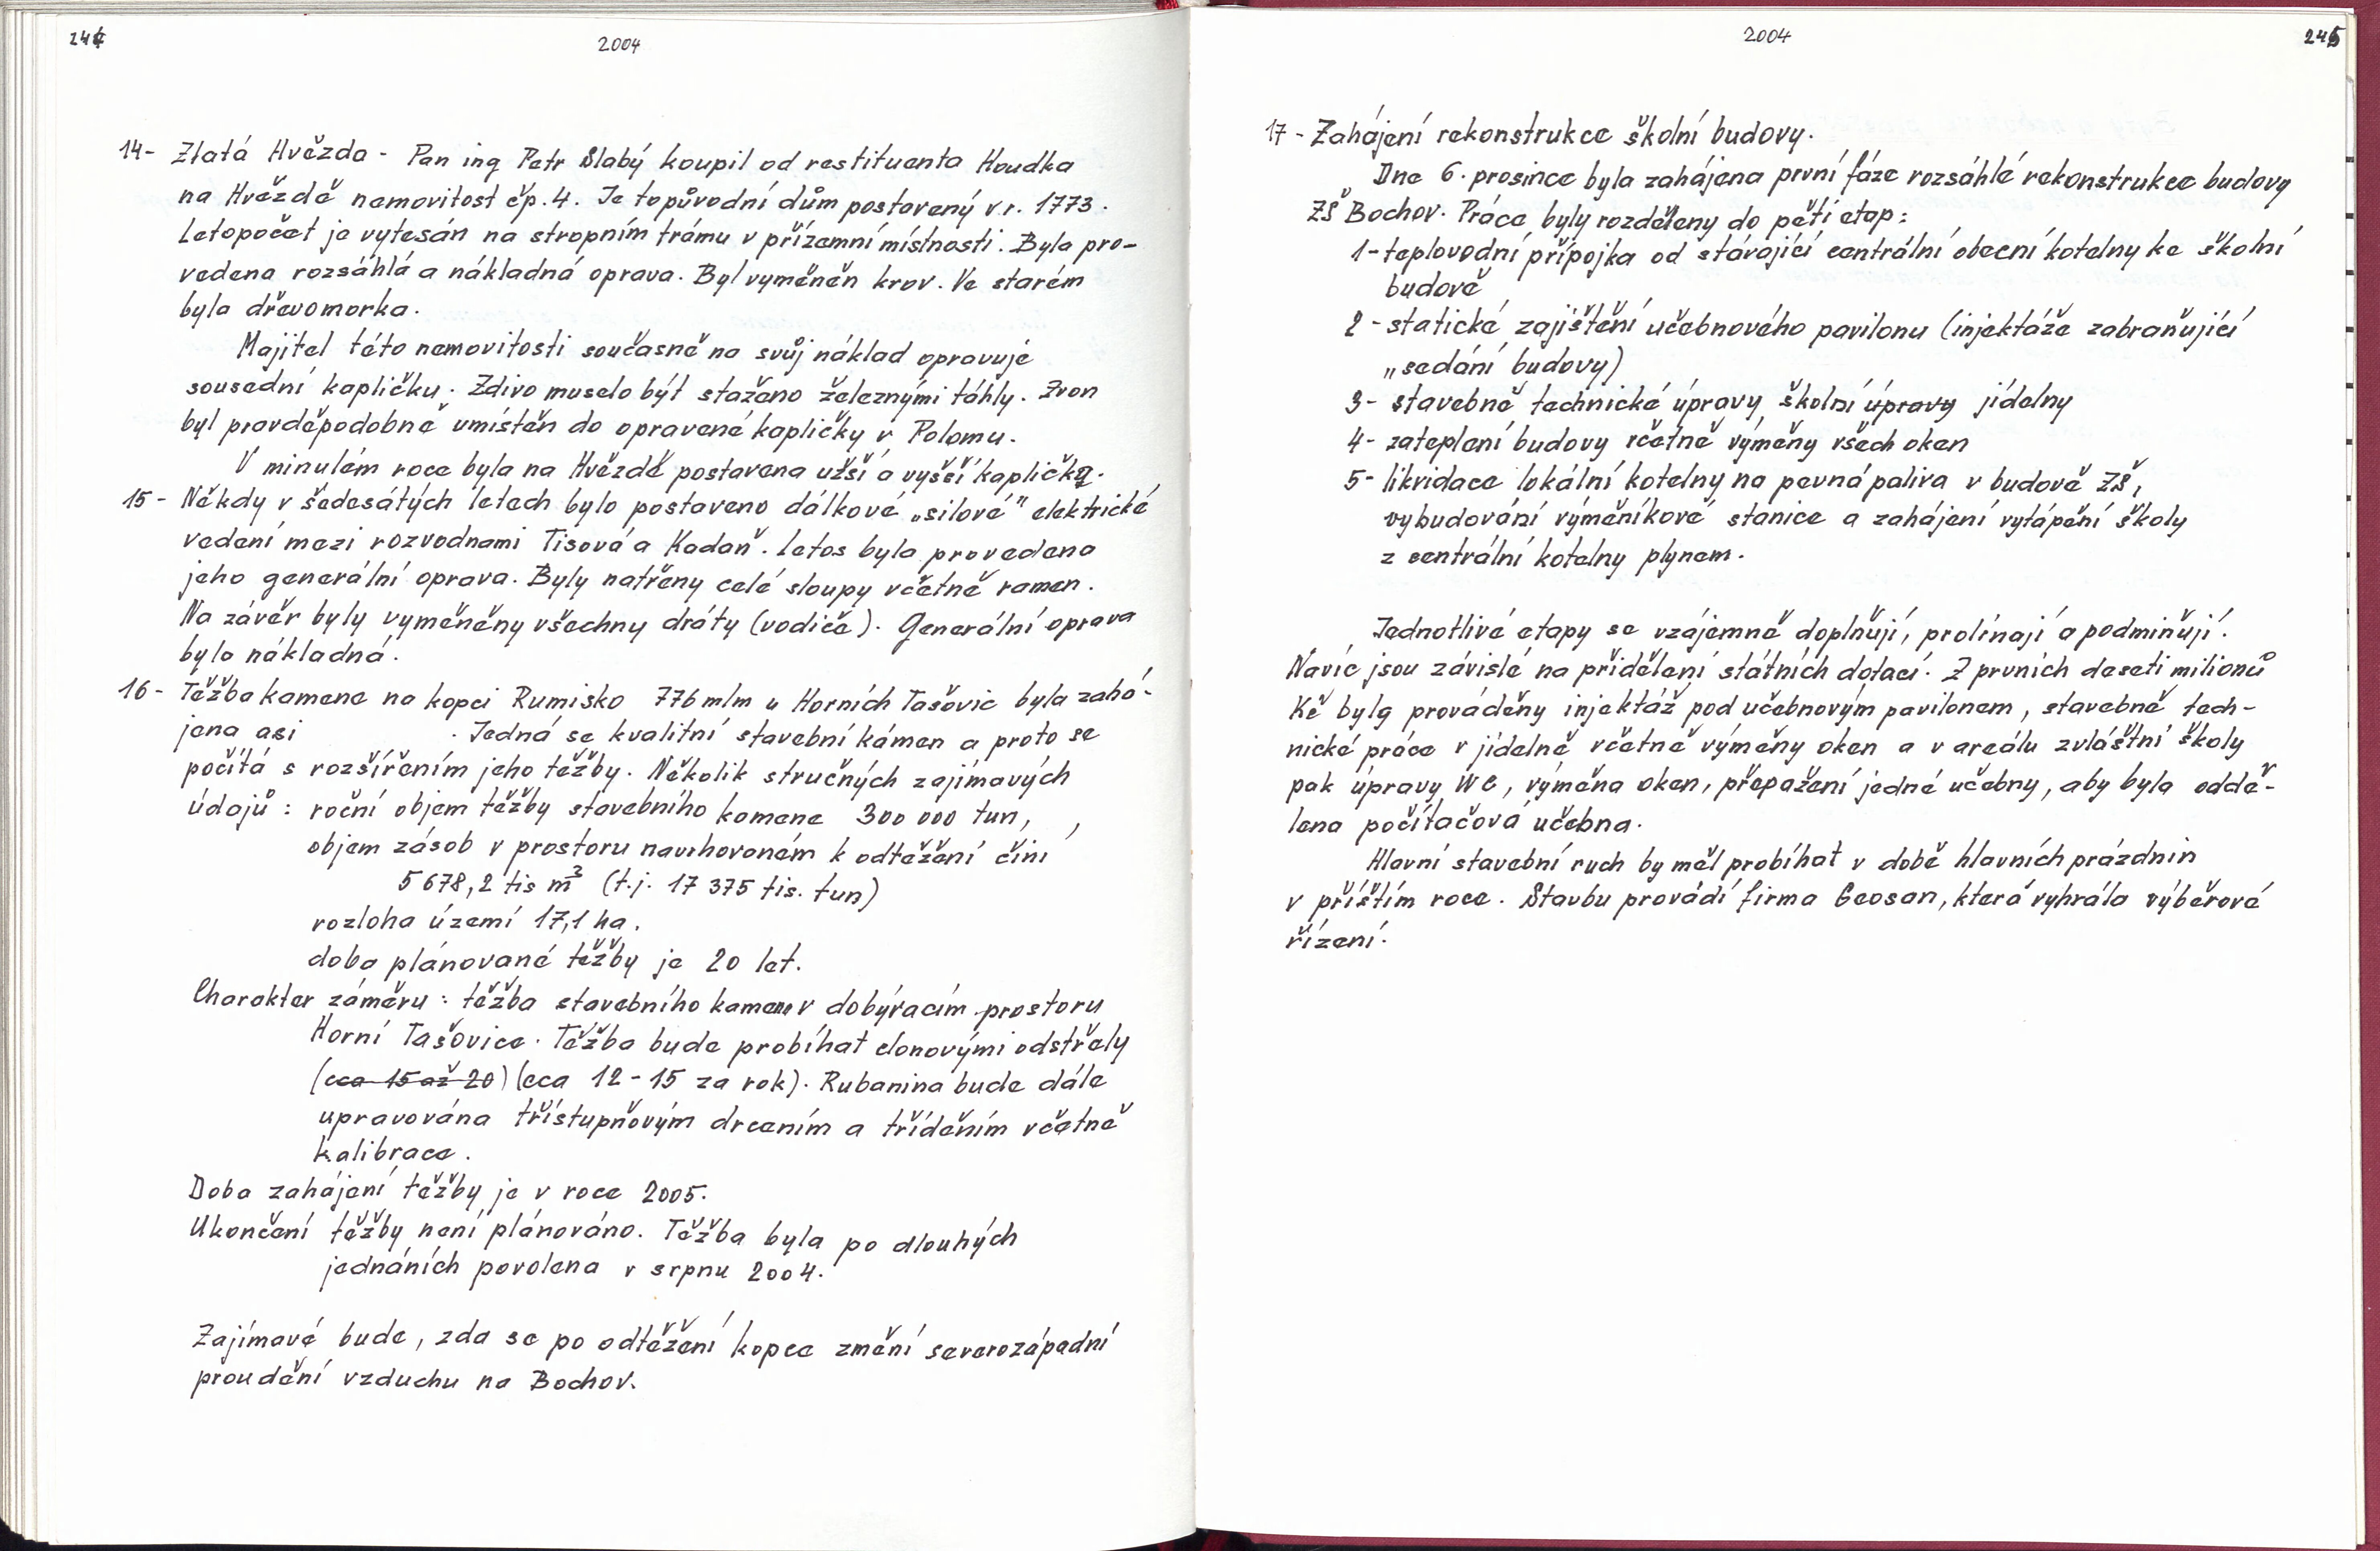 244
2004
14- Zlatá Hvězda - Pan ing Petr Slabý koupil od restituenta Houdka
na Hvězdě nemovitost čp. 4. Je to původní dům postavený v r. 1773.
Letopočet je vytesán na stropním trámu v přízemní místnosti. Byla pro-
vedena rozsáhlá a nákladná oprava. Byl vyměněn krov. Ve starém
byla dřevomorka.
Majitel této nemovitosti současně na svůj náklad opravuje
sousední kapličku. Zdivo muselo být staženo železnými táhly. Zvon
byl pravděpodobně umístěn do opravené kapličky v Polomu.
V minulém roce byla na Hvězdě postavena užší a vyšší kaplička.
15- Někdy v šedesátých letech bylo postaveno dálkové „silové" elektrické
vedení mezi rozvodnami Tisová a Kadaň. Letos byla provedena
jeho generální oprava. Byly natřeny celé sloupy včetně ramen.
Na závěr byly vyměněny všechny dráty (vodiče). Generální oprava
byla nákladná.
16- Těžba kamene na kopci Rumisko 776 mlm u Horních Tašovic byla zahá-
jena asi . Jedná se kvalitní stavební kámen a proto se
počítá s rozšířením jeho těžby. Několik stručných zajímavých
údajů: roční objem těžby stavebního kamene 300 000 tun,
objem zásob v prostoru navrhovaném k odtěžení činí
5 678,2 tis m³ (t.j. 17 375 tis. tun)
rozloha území 17,1 ha.
doba plánované těžby je 20 let.
Charakter záměru: těžba stavebního kamene v dobývacím prostoru
Horní Tašovice. Těžba bude probíhat clonovými odstřely
(cca 15 až 20) (cca 12-15 za rok). Rubanina bude dále
upravována třístupňovým drcením a tříděním včetně
kalibrace.
Doba zahájení těžby je v roce 2005.
Ukončení těžby není plánováno. Těžba byla po dlouhých
jednáních povolena v srpnu 2004.
Zajímavé bude, zda se po odtěžení kopce změní severozápadní
proudění vzduchu na Bochov.
2004
245
17- Zahájení rekonstrukce školní budovy.
Dne 6. prosince byla zahájena první fáze rozsáhlé rekonstrukce budovy
ZŠ Bochov. Práce byly rozděleny do pěti etap:
1- teplovodní přípojka od stávající centrální obecní kotelny ke školní
budově
2- statické zajištění učebnového pavilonu (injektáže zabraňující
„sedání budovy)
3- stavebně technické úpravy školní úpravy jídelny
4- zateplení budovy včetně výměny všech oken
5- likvidace lokální kotelny na pevná paliva v budově ZŠ,
vybudování výměníkové stanice a zahájení vytápění školy
z centrální kotelny plynem.
Jednotlivé etapy se vzájemně doplňují, prolínají a podmiňují.
Navíc jsou závislé na přidělení státních dotací. Z prvních deseti milionů
Kč byly prováděny injektáž pod učebnovým pavilonem, stavebně tech-
nické práce v jídelně včetně výměny oken a v areálu zvláštní školy
pak úpravy WC, výměna oken, přepažení jedné učebny, aby byla oddě-
lena počítačová učebna.
Hlavní stavební ruch by měl probíhat v době hlavních prázdnin
v příštím roce. Stavbu provádí firma Geosan, která vyhrála výběrové
řízení.